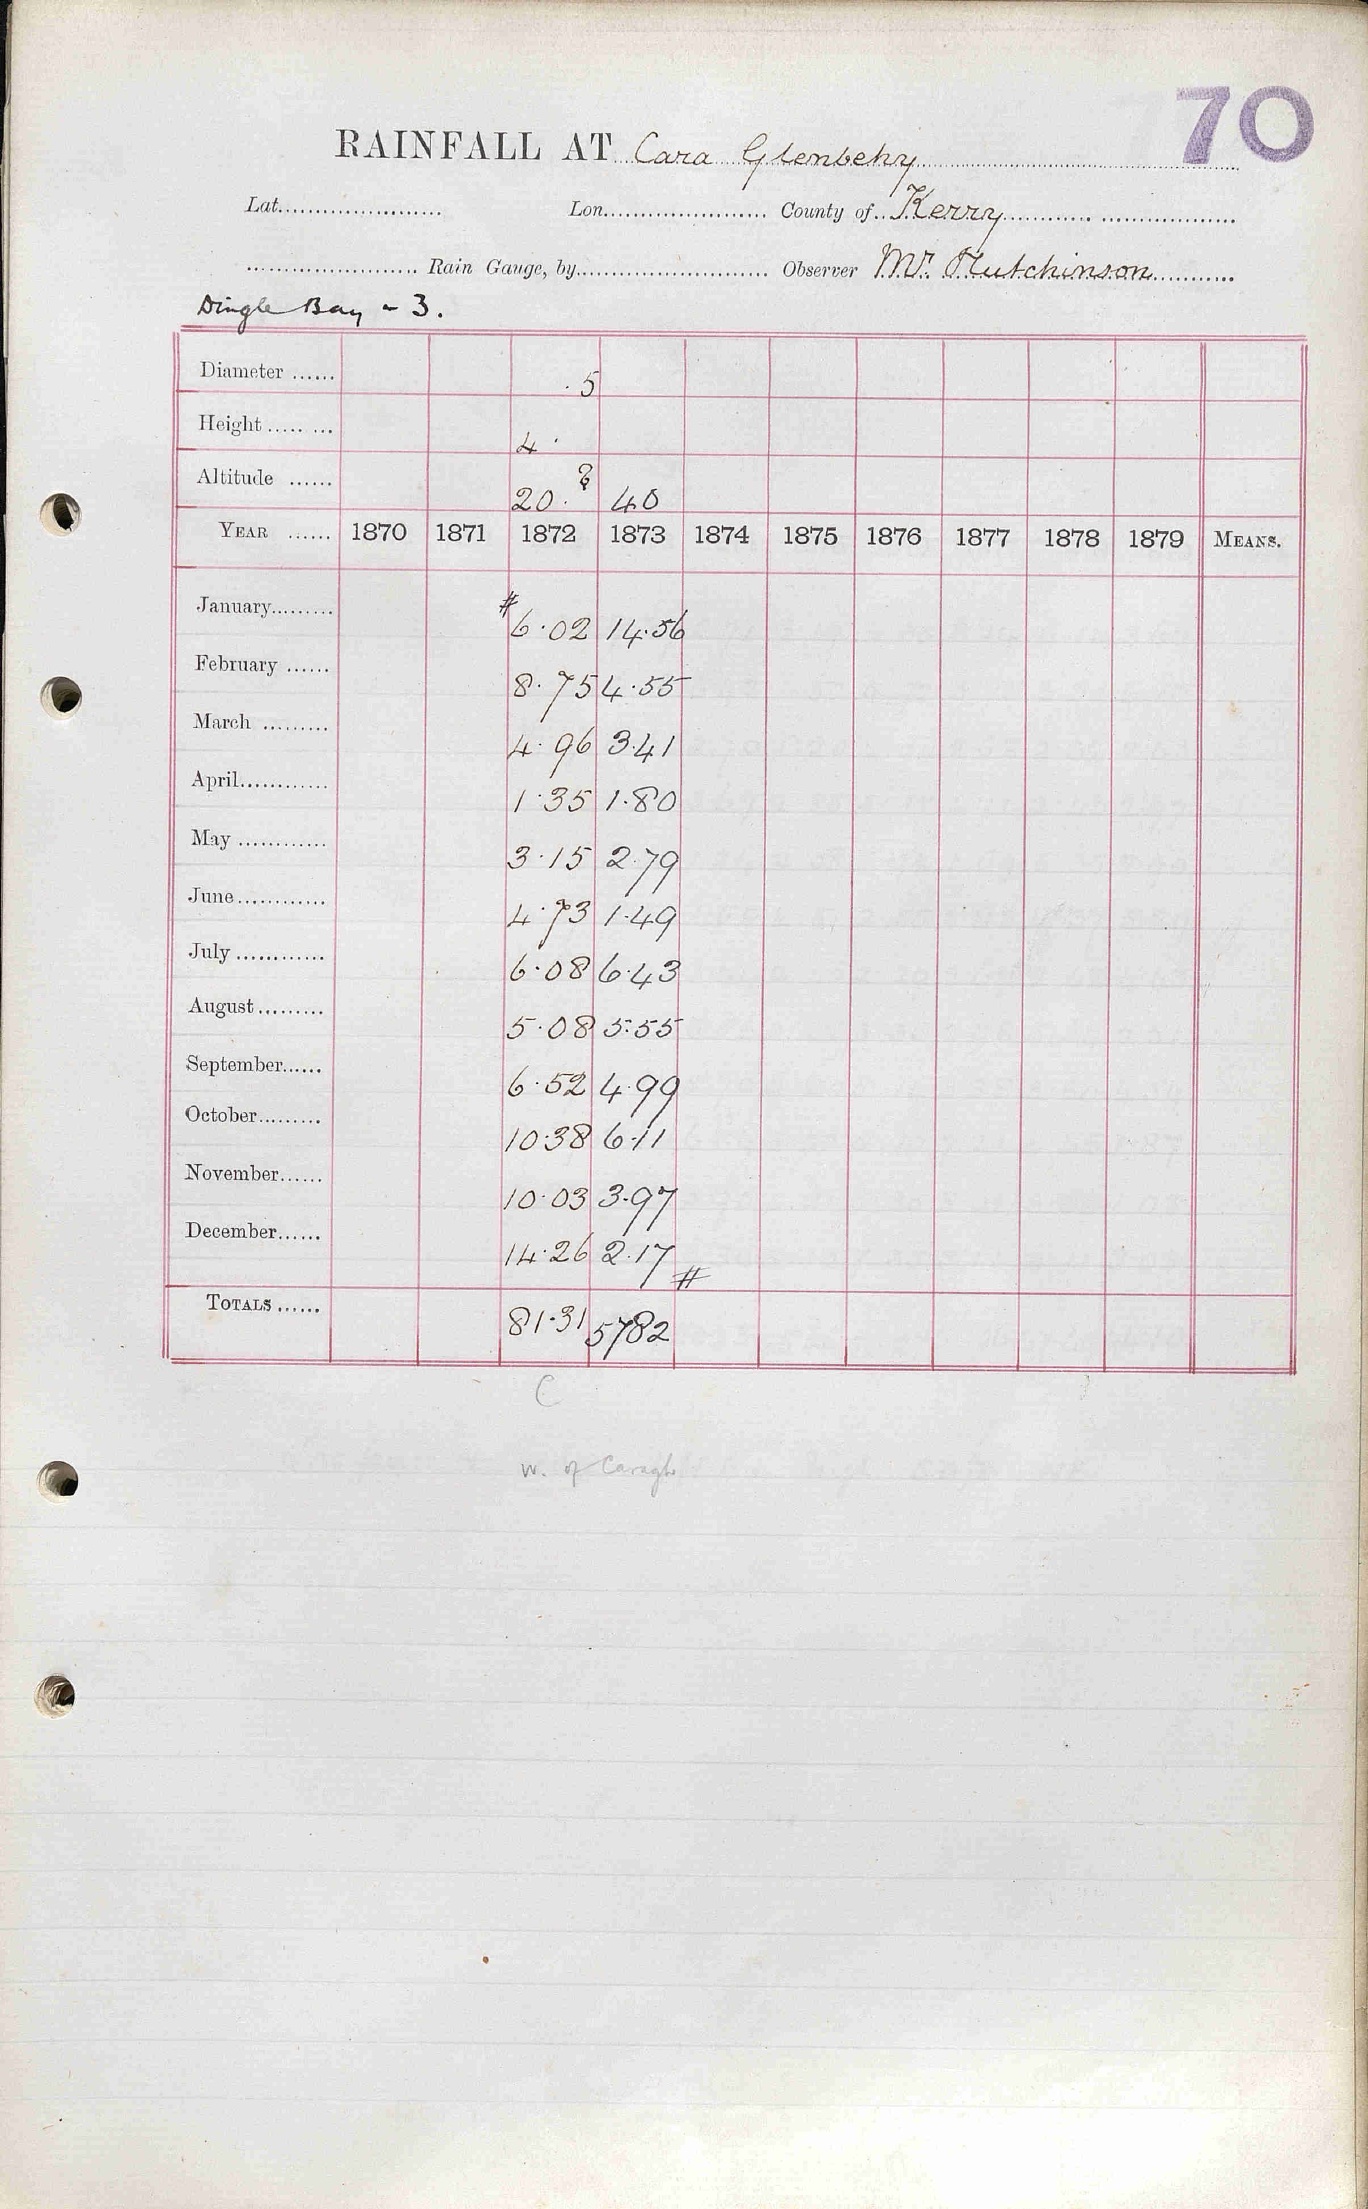 70
RAINFALL AT Cara Glenbehy
Lat...................... Lon...................... County of Kerry
...................... Rain Gauge, by...................... Observer Mr. Hutchinson
Dingle Bay - 3.
Diameter ...... .5
Height ........ 4.
Altitude ...... 20. ? 40
YEAR ...... 1870 1871 1872 1873 1874 1875 1876 1877 1878 1879 MEANS.
January......... # 6.02 14.56
February ...... 8.75 4.55
March ......... 4.96 3.41
April............ 1.35 1.80
May ............ 3.15 2.79
June............ 4.73 1.49
July ............ 6.08 6.43
August......... 5.08 5.55
September...... 6.52 4.99
October......... 10.38 6.11
November...... 10.03 3.97
December...... 14.26 2.17 #
TOTALS ...... 81.31 5782
C
W. of Caragh